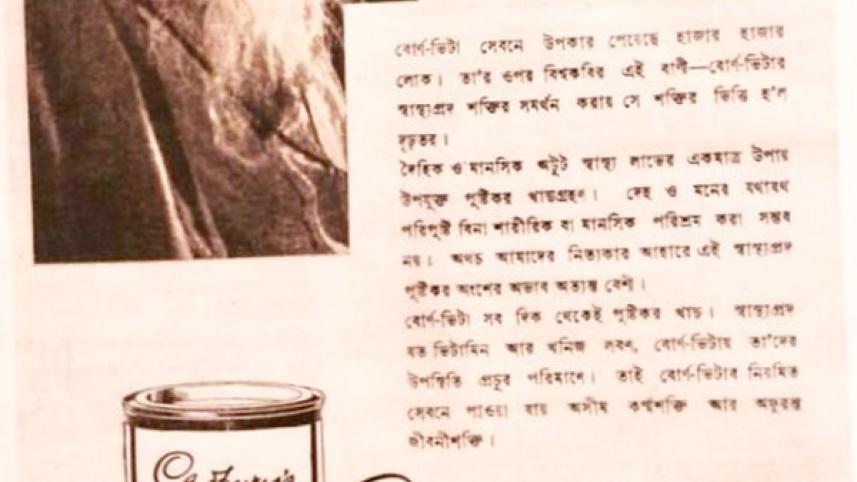 বোর্ণ-ভিটা সেবনে উপকার পেয়েছে হাজার হাজার
লোক। তা'র ওপর বিশ্বকবির এই বাণী—বোর্ণ-ভিটার
স্বাস্থ্যপ্রদ শক্তির সমর্থন করায় সে শক্তির ভিত্তি হ'ল
দৃঢ়তর।
দৈহিক ও মানসিক অটুট স্বাস্থ্য লাভের একমাত্র উপায়
উপযুক্ত পুষ্টিকর খাদ্যগ্রহণ। দেহ ও মনের যথাযথ
পরিপুষ্টি বিনা শারীরিক বা মানসিক পরিশ্রম করা সম্ভব
নয়। অথচ আমাদের নিত্যকার আহারে এই স্বাস্থ্যপ্রদ
পুষ্টিকর অংশের অভাব অত্যন্ত বেশী।
বোর্ণ-ভিটা সব দিক থেকেই পুষ্টিকর খাদ্য। স্বাস্থ্যপ্রদ
যত ভিটামিন আর খনিজ লবণ, বোর্ণ-ভিটায় তা'দের
উপস্থিতি প্রচুর পরিমাণে। তাই বোর্ণ-ভিটার নিয়মিত
সেবনে পাওয়া যায় অসীম কর্ম্মশক্তি আর অফুরন্ত
জীবনীশক্তি।